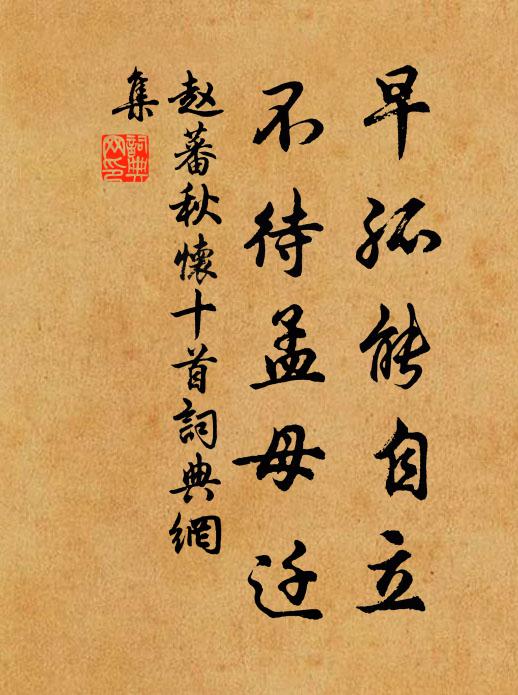 早孤能自立
不待孟母迁
赵蕃秋懷十首詞典網
集
詞典